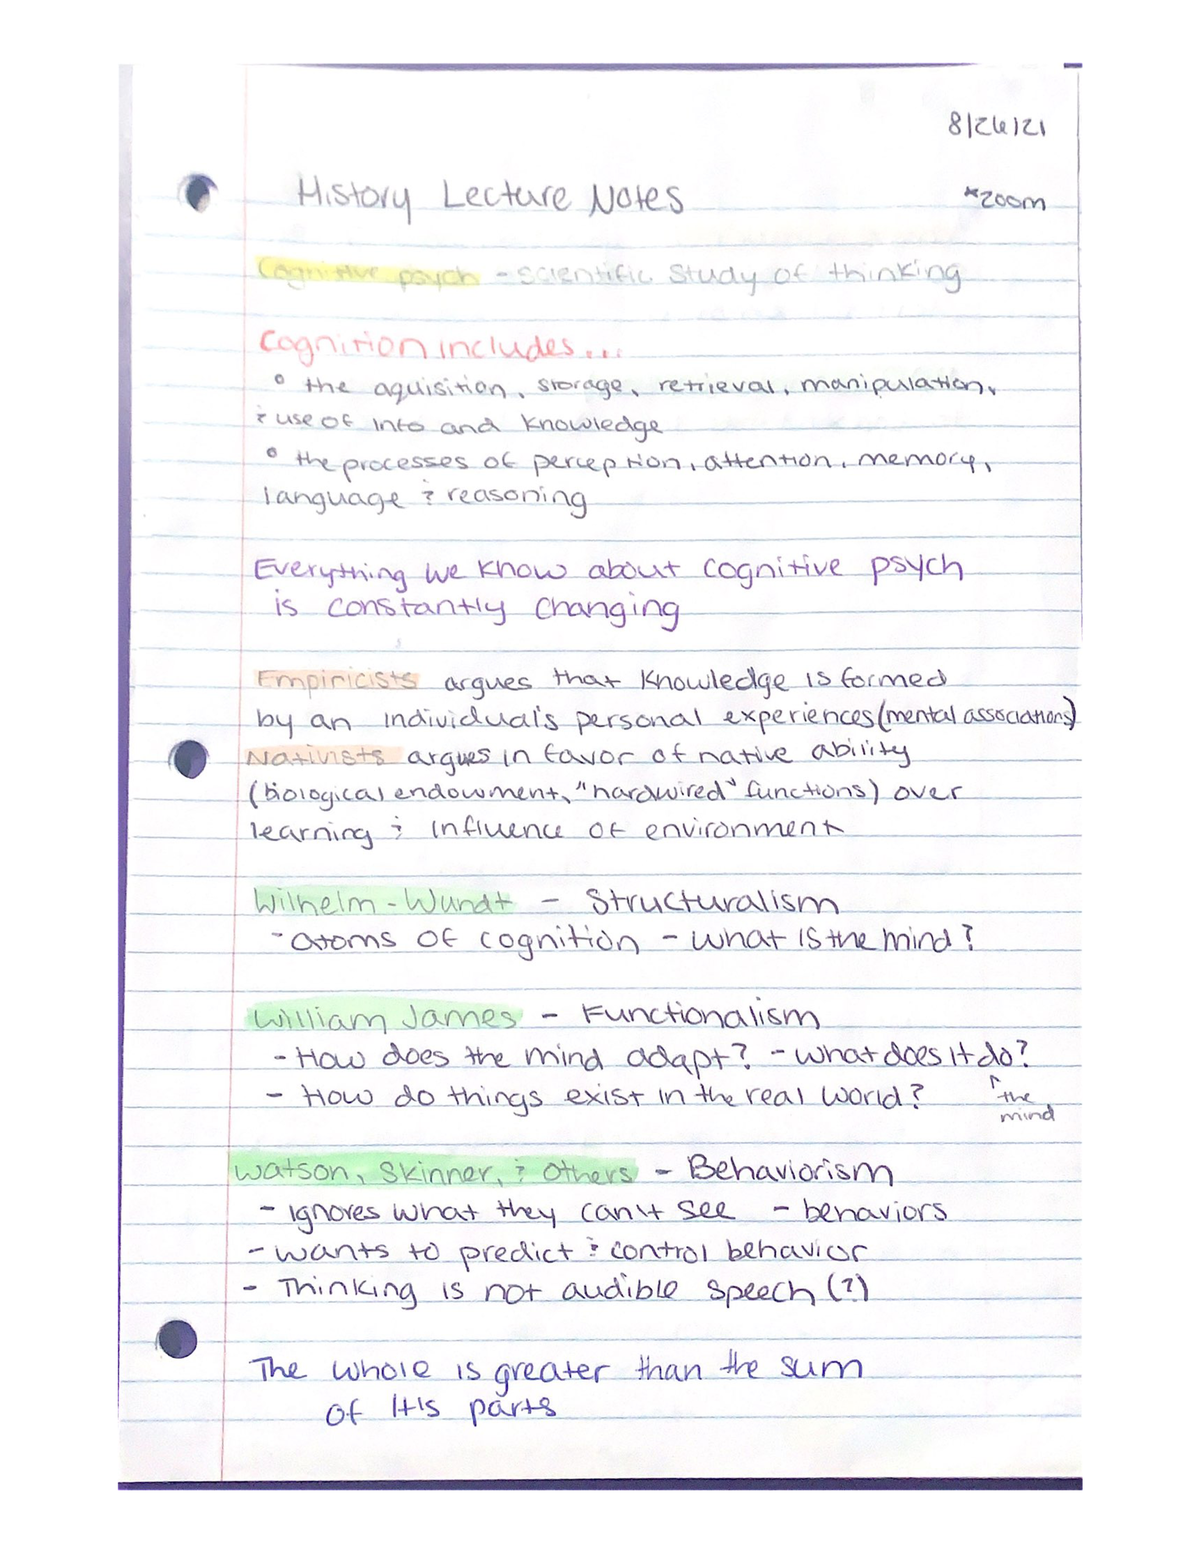 8/26/21
History Lecture Notes
*zoom
Cognitive psych - scientific study of thinking
Cognition includes...
° the aquisition, storage, retrieval, manipulation,
& use of info and knowledge
° the processes of perception, attention, memory,
language & reasoning
Everything we know about cognitive psych
is constantly changing
Empiricists argues that knowledge is formed
by an individual's personal experiences (mental associations)
Nativists argues in favor of native ability
(biological endowment, "hardwired" functions) over
learning & influence of environment
Wilhelm-Wundt - Structuralism
- atoms of cognition - what is the mind?
William James - Functionalism
- How does the mind adapt? - what does it do?
- How do things exist in the real world? ↑ the
mind
Watson, Skinner, & others - Behaviorism
- ignores what they can't see - behaviors
- wants to predict & control behavior
- Thinking is not audible speech (?)
The whole is greater than the sum
of it's parts